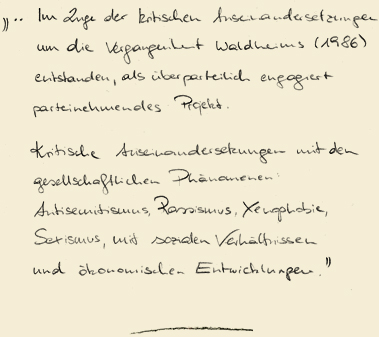 ".. Im Zuge der kritischen Auseinandersetzungen
um die Vergangenheit Waldheims (1986)
entstanden, als überparteilich engagiert
parteinehmendes Projekt.
Kritische Auseinandersetzungen mit den
gesellschaftlichen Phänomenen:
Antisemitismus, Rassismus, Xenophobie,
Sexismus, mit sozialen Verhältnissen
und ökonomischen Entwicklungen."